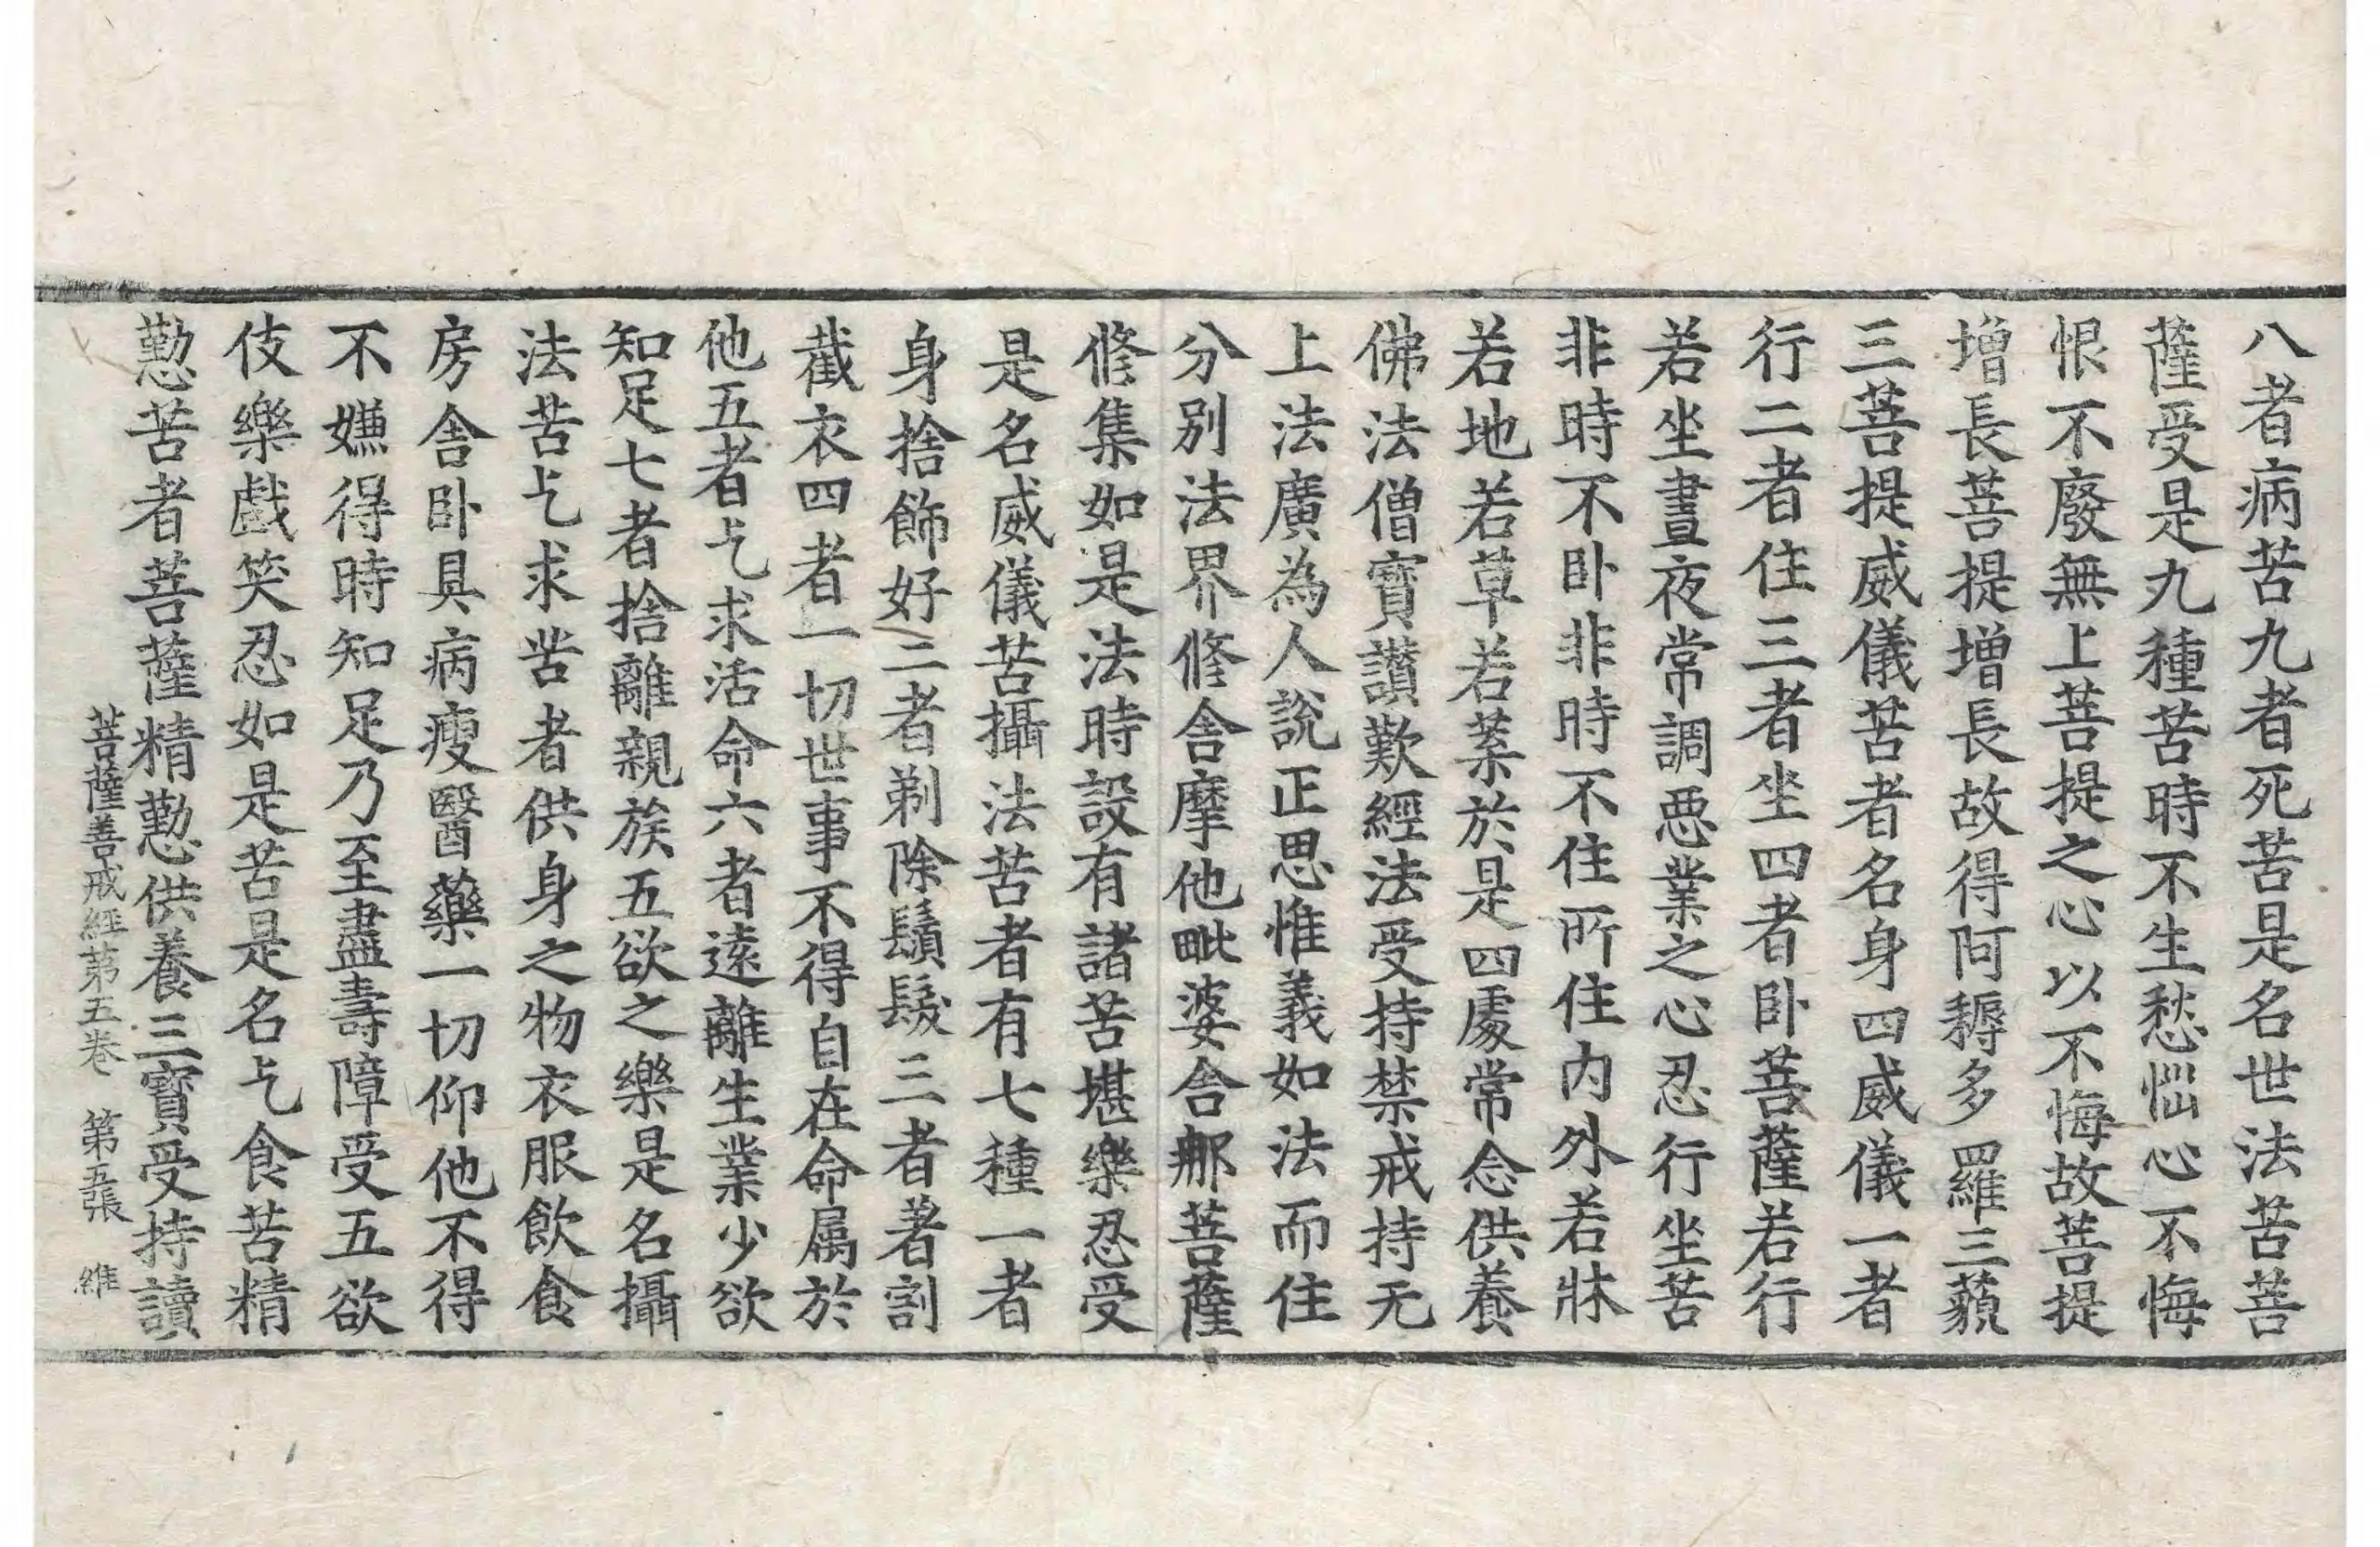 八者病苦九者死苦是名世法苦菩
薩受是九種苦時不生愁惱心不悔
恨不廢無上菩提之心以不悔故菩提
增長菩提增長故得阿耨多羅三藐
三菩提威儀苦者名身四威儀一者
行二者住三者坐四者卧菩薩若行
若坐晝夜常調惡業之心忍行坐苦
非時不卧非時不住所住内外若牀
若地若草若葉於是四處常念供養
佛法僧寶讃歎經法受持禁戒持无
上法廣為人說正思惟義如法而住
分别法界修舍摩他毗婆舍那菩薩
修集如是法時設有諸苦堪樂忍受
是名威儀苦攝法苦者有七種一者
身捨飾好二者剃除鬚髮三者著割
截衣四者一切世事不得自在命属於
他五者乞求活命六者遠離生業少欲
知足七者捨離親族五欲之樂是名攝
法苦乞求苦者供身之物衣服飲食
房舍卧具病瘦醫藥一切仰他不得
不嫌得時知足乃至盡壽障受五欲
伎樂戲笑忍如是苦是名乞食苦精
懃苦者菩薩精懃供養三寶受持讀
菩薩善戒經苐五卷 第五張 維